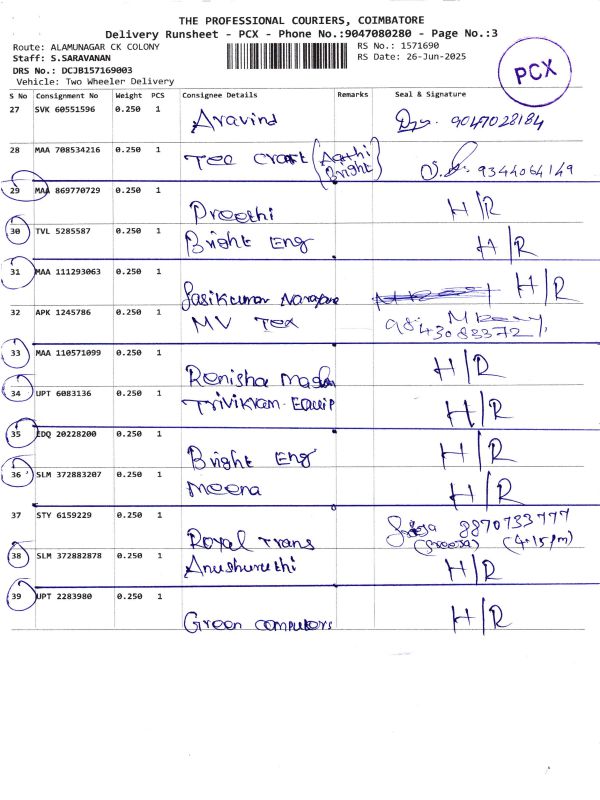 THE PROFESSIONAL COURIERS, COIMBATORE
Delivery Runsheet - PCX - Phone No.:9047080280 - Page No.:3
Route: ALAMUNAGAR CK COLONY
Staff: S.SARAVANAN
DRS No.: DCJB157169003
Vehicle: Two Wheeler Delivery
RS No.: 1571690
RS Date: 26-Jun-2025
PCX
S No Consignment No Weight PCS Consignee Details Remarks Seal & Signature
27 SVK 60551596 0.250 1 Aravind 9047028184
28 MAA 708534216 0.250 1 Tec Craft (Agathi Bright) 9344064149
29 MAA 869770729 0.250 1 Preethi H/R
30 TVL 5285587 0.250 1 Bright Eng H/R
31 MAA 111293063 0.250 1 Sasikumar H/R
32 APK 1245786 0.250 1 MV Tex 9843083372
33 MAA 110571099 0.250 1 Renisha H/R
34 UPT 6083136 0.250 1 Trivikram-Equip H/R
35 EDQ 20228200 0.250 1 Bright Eng H/R
36 SLM 372883207 0.250 1 Meena H/R
37 STY 6159229 0.250 1 Royal Trans 8870733777 (4.15pm)
38 SLM 372882878 0.250 1 Anushuruthi H/R
39 UPT 2283980 0.250 1 Green computers H/R